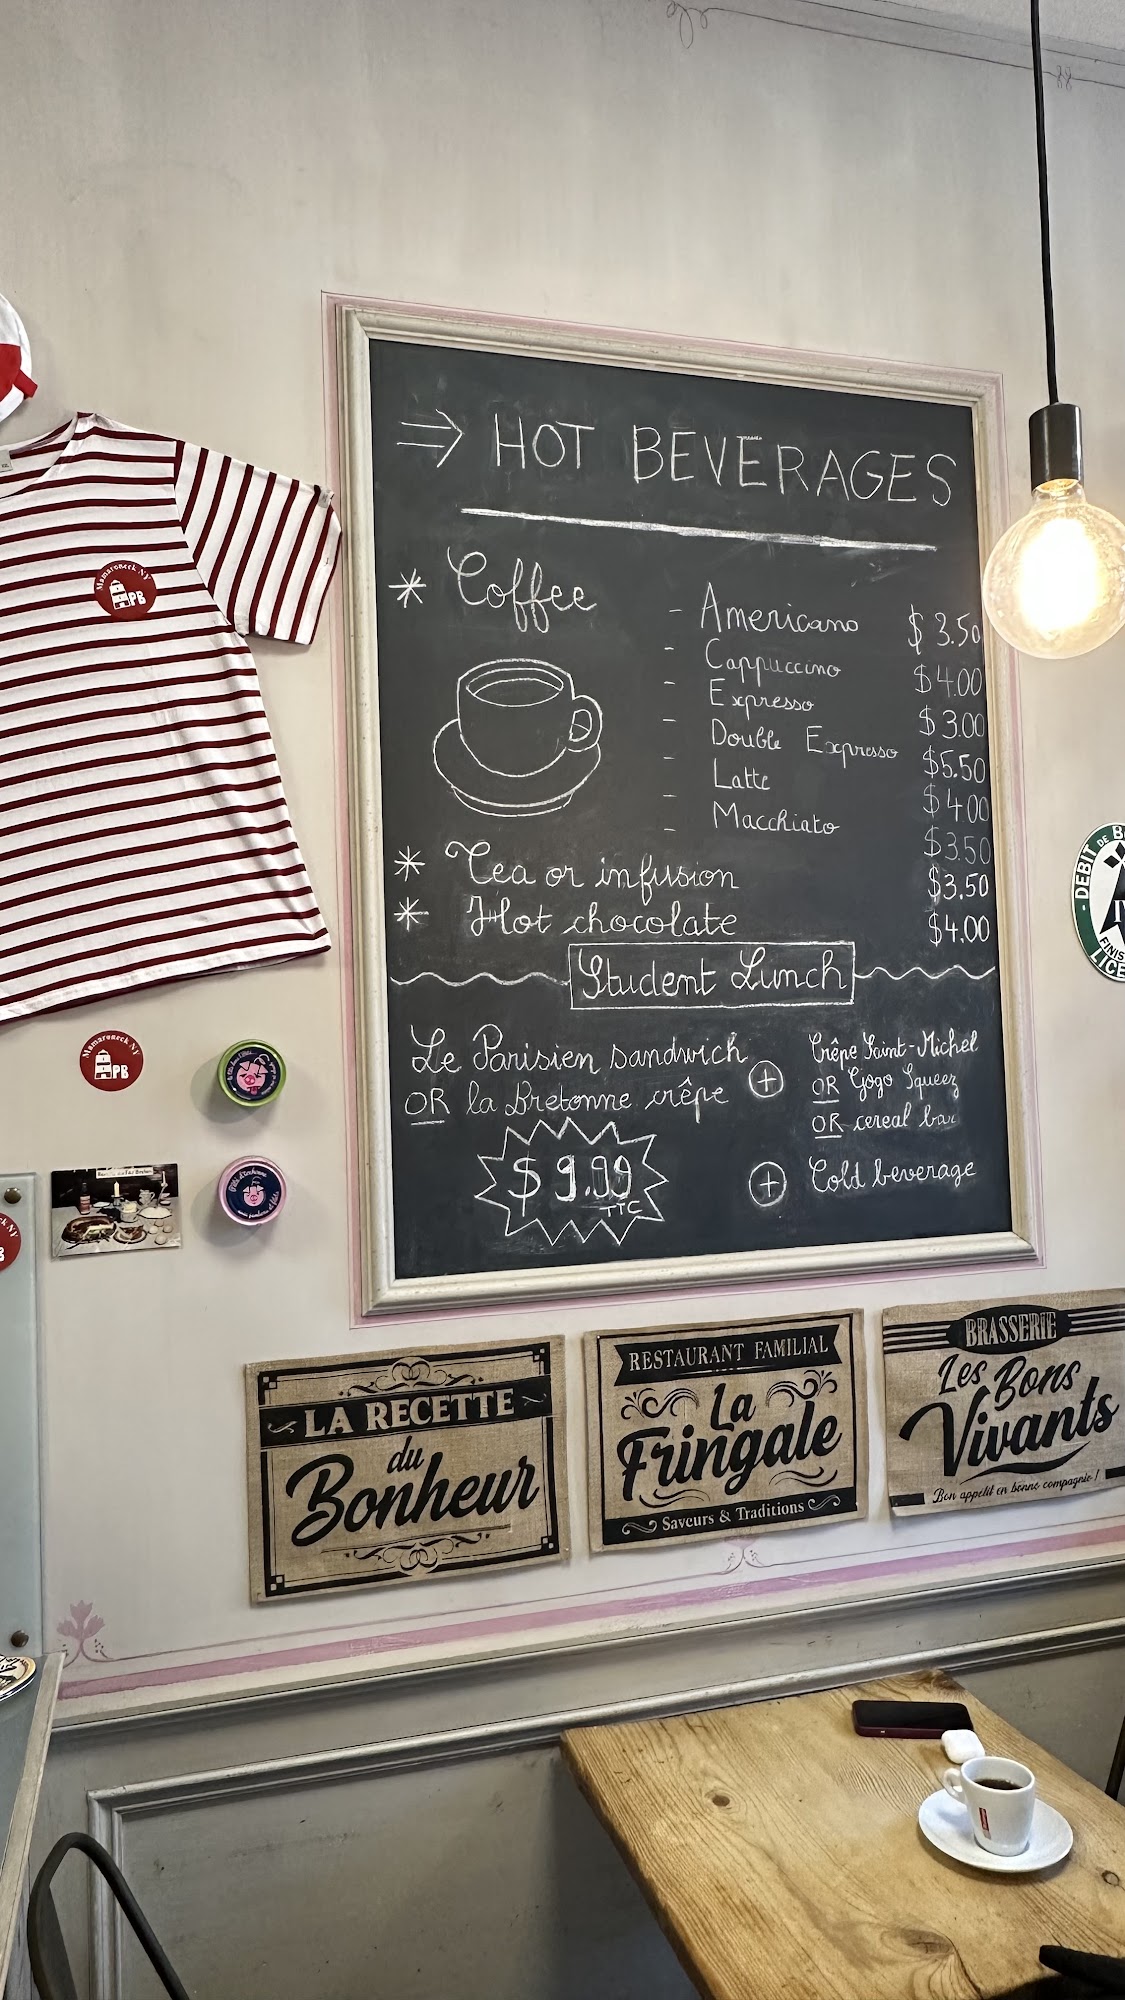 ⇒ HOT BEVERAGES
* Coffee
- Americano $3.50
- Cappuccino $4.00
- Expresso $3.00
- Double Expresso $5.50
- Latte $4.00
- Macchiato $3.50
* Tea or infusion $3.50
* Hot chocolate $4.00
Student Lunch
Le Parisien sandwich
OR la Bretonne crêpe
$9.99
TTC
+
Crêpe Saint-Michel
OR Gogo Squeez
OR cereal bar
+ Cold beverage
Mamaroneck NY
PB
Mamaroneck NY
PB
LA RECETTE
du
Bonheur
RESTAURANT FAMILIAL
La
Fringale
Saveurs & Traditions
BRASSERIE
Les Bons
Vivants
Bon appétit en bonne compagnie !
- DEBIT DE